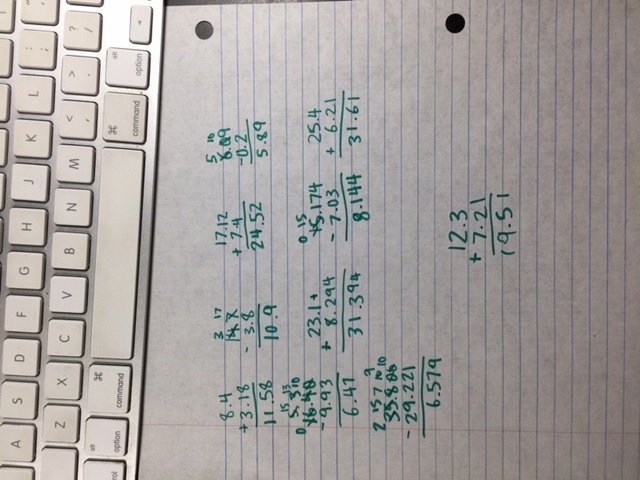 A S D F G H J K L : ;
Z X C V B N M < , > . ? /
rol alt option ⌘ command ⌘ command alt option
3 17 5 10
8.4 14.7 17.12 6.09
+3.18 - 3.8 + 7.4 -0.2
11.58 10.9 24.52 5.89
15 13
0 5. 3 10 0 15
16.40 23.1 15.174 25.4
-9.93 + 8.294 - 7.03 + 6.21
6.47 31.394 8.144 31.61
9
2 15 7 10 10
35.800
-29.221
6.579
12.3
+ 7.21
19.51